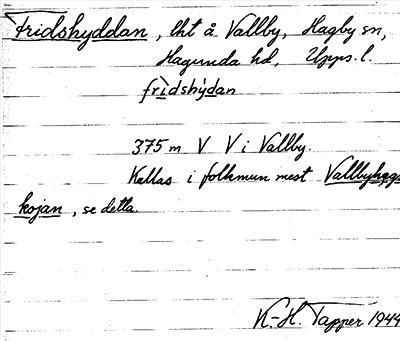 Fridshyddan, lht å Vallby, Hagby sn,
Hagunda hd, Upps. l.
frìdshỳdan
375 m V V i Vallby.
Kallas i folkmun mest Vallbyhags-
kojan, se detta.
K.-H. Tapper 1944